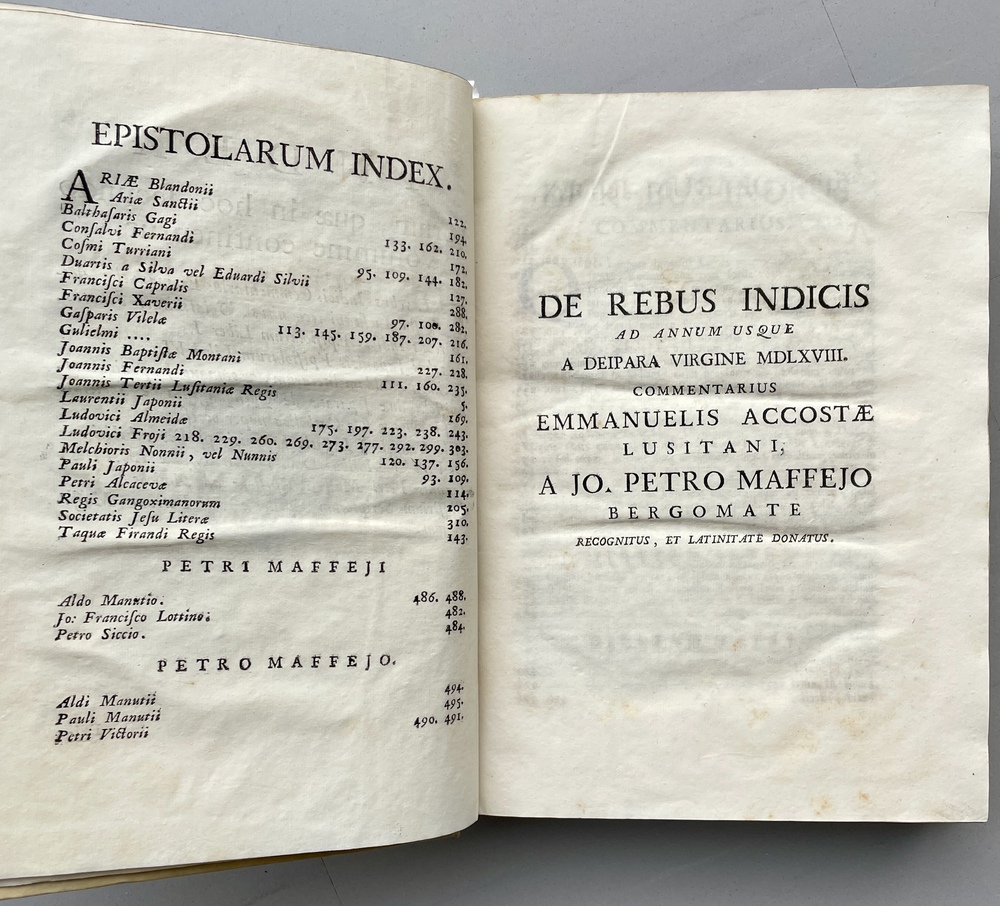 EPISTOLARUM INDEX.
ARIÆ Blandonii 122.
Ariæ Sanctii 194.
Balthaſaris Gagi 133. 162. 210.
Conſalvi Fernandi 172.
Coſmi Turriani 95. 109. 144. 182.
Duartis a Silva vel Eduardi Silvii 127.
Franciſci Capralis 288.
Franciſci Xaverii 97. 100. 282.
Gaſparis Vilelæ 113. 145. 159. 187. 207. 216.
Gulielmi .... 161.
Joannis Baptiſtæ Montani 227. 228.
Joannis Fernandi 111. 160. 235.
Joannis Tertii Luſitaniæ Regis 5.
Laurentii Japonii 169.
Ludovici Almeidæ 175. 197. 223. 238. 243.
Ludovici Froji 218. 229. 260. 269. 273. 277. 292. 299. 303.
Melchioris Nonnii, vel Nunnis 120. 137. 156.
Pauli Japonii 93. 109.
Petri Alcacevæ 114.
Regis Gangoximanorum 205.
Societatis Jeſu Literæ 310.
Taquæ Firandi Regis 143.
PETRI MAFFEJI
Aldo Manutio. 486. 488.
Jo: Franciſco Lottino. 482.
Petro Siccio. 484.
PETRO MAFFEJO.
Aldi Manutii 494.
Pauli Manutii 495.
Petri Victorii 490. 491.
DE REBUS INDICIS
AD ANNUM USQUE
A DEIPARA VIRGINE MDLXVIII.
COMMENTARIUS
EMMANUELIS ACCOSTÆ
LUSITANI,
A JO. PETRO MAFFEJO
BERGOMATE
RECOGNITUS, ET LATINITATE DONATUS.